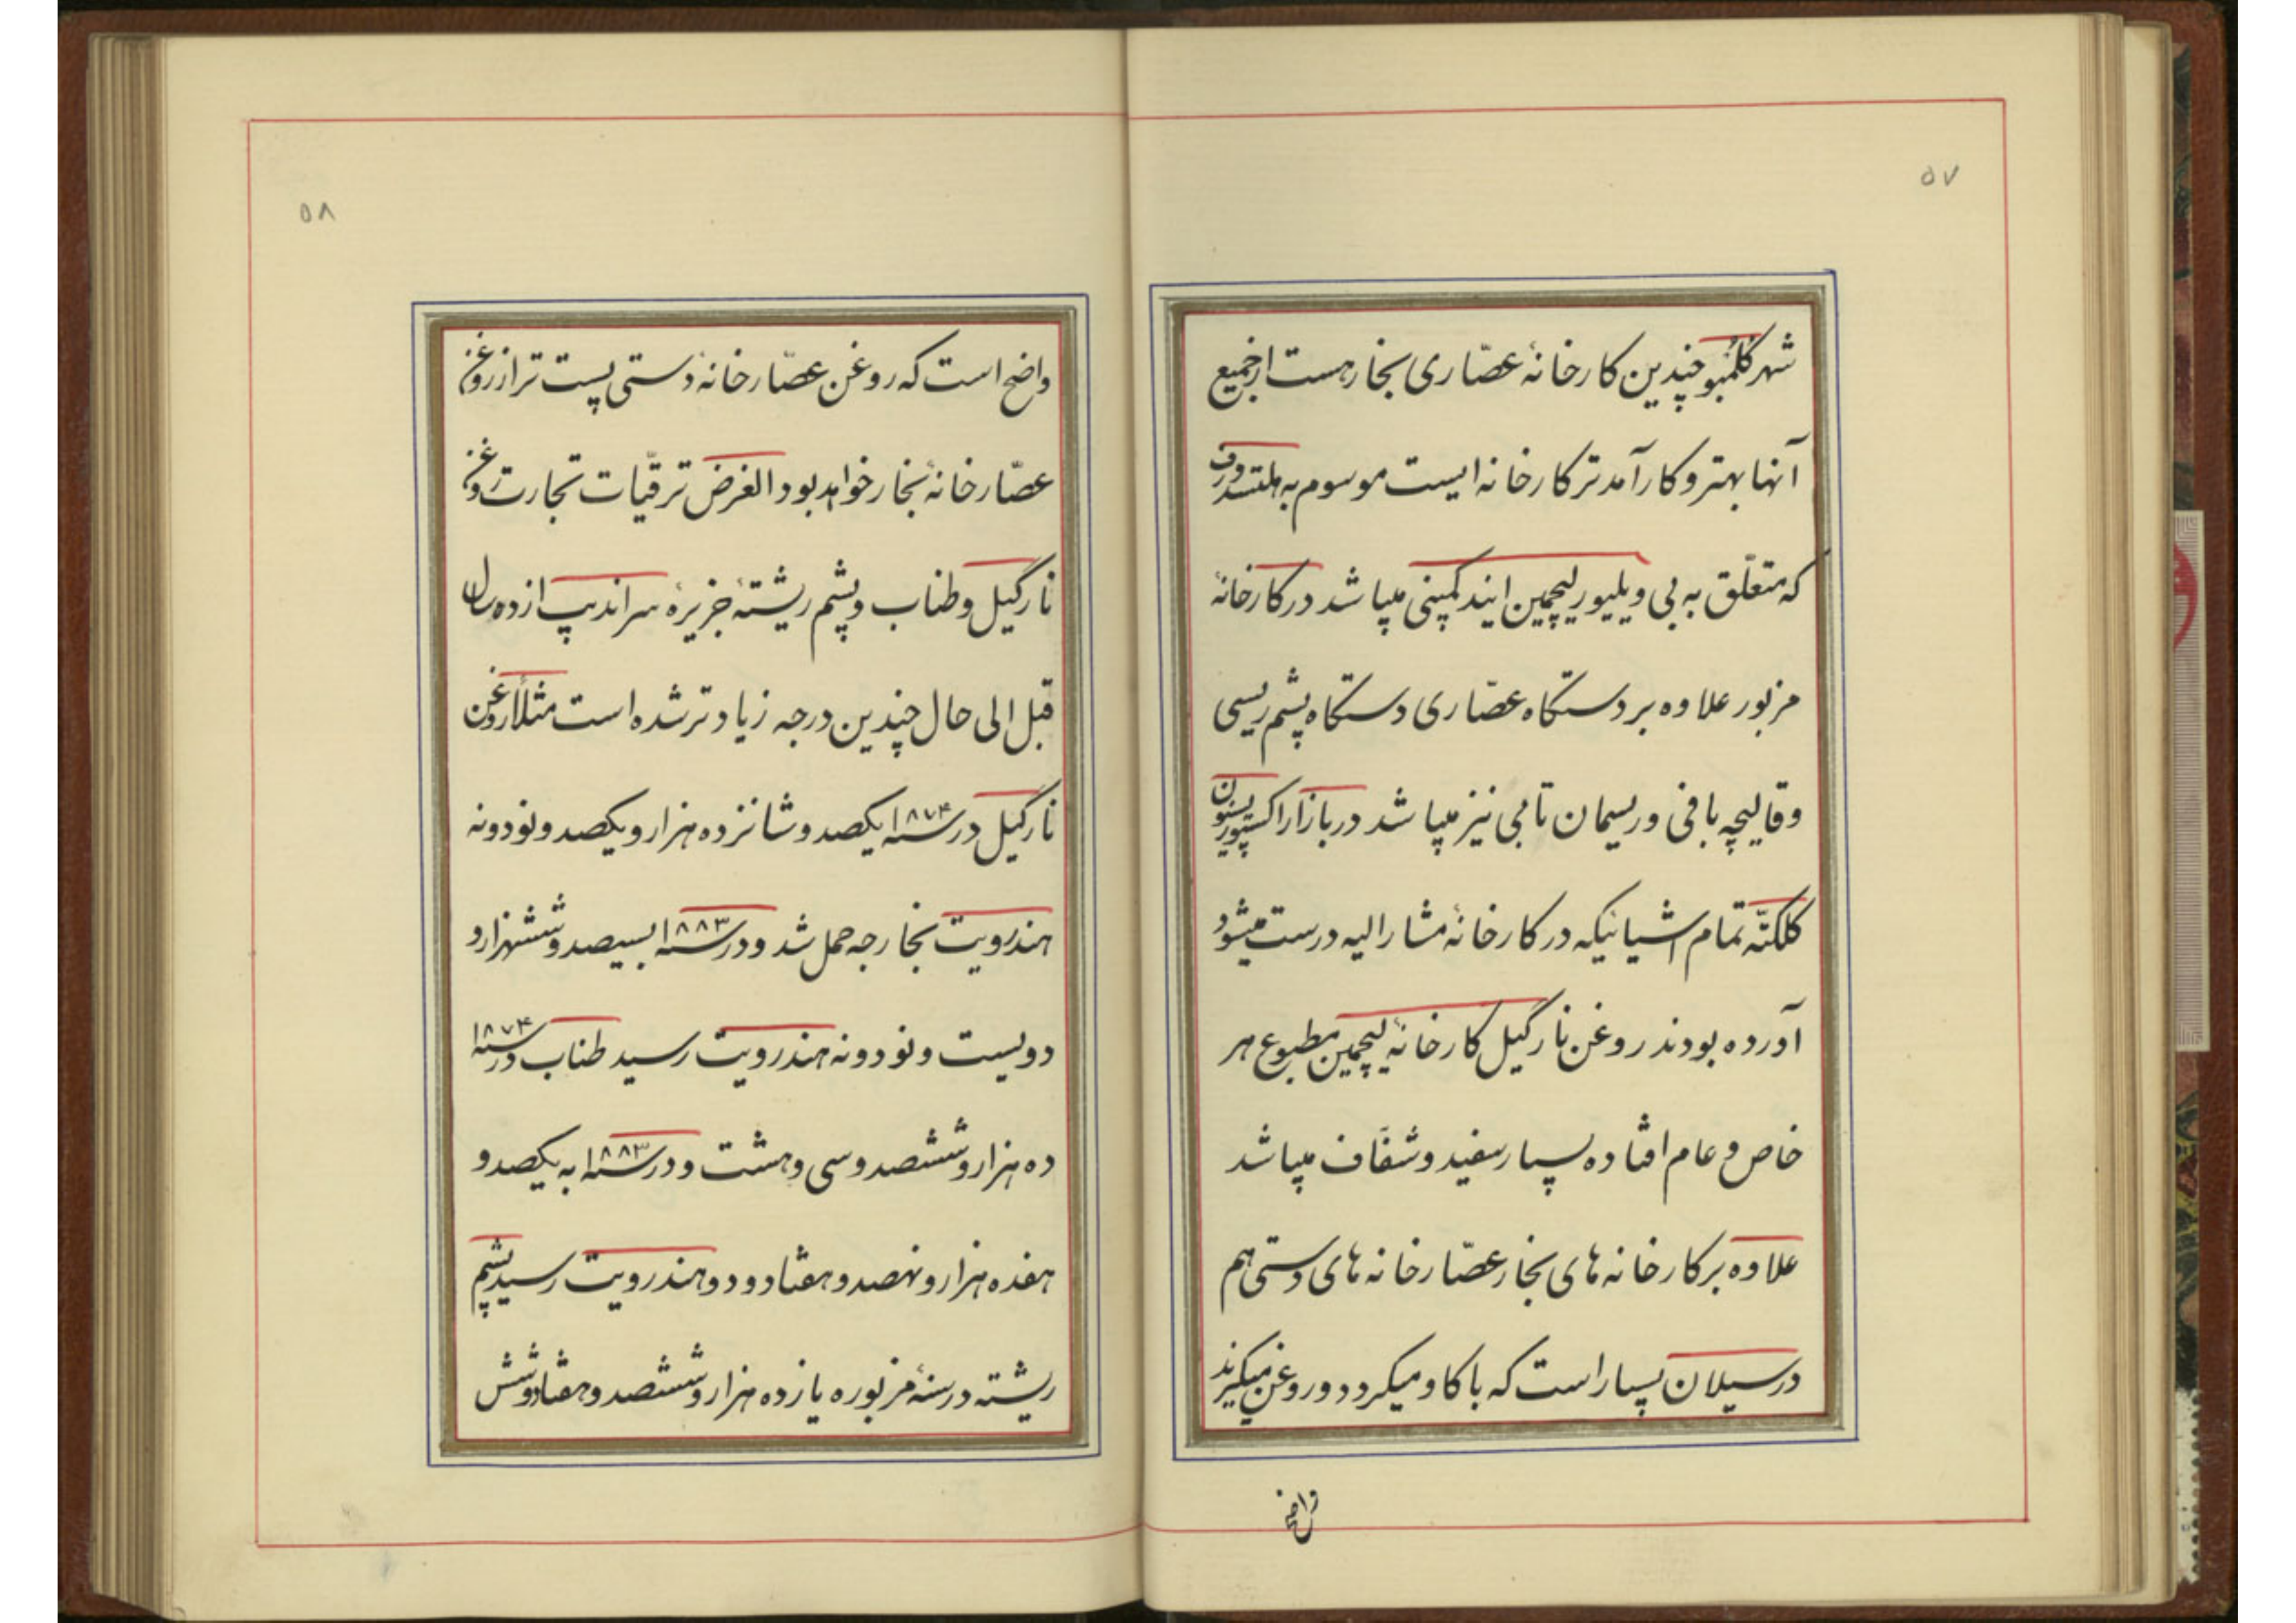 ۵۷
شهر کلمبو چندین کارخانهٔ عصّاری بخار هست از جمیع
آنها بهتر و کارآمدتر کارخانه ایست موسوم به هلتسدورف
که متعلّق به بی ویلیور لیچمین ایند کمپنی میباشد در کارخانهٔ
مزبور علاوه بر دستگاه عصّاری دستگاه پشم ریسی
و قالیچه بافی و ریسمان تابی نیز میباشد در بازار اکسپوزیسیون
کلکتّه تمام اشیائیکه در کارخانهٔ مشارالیه درست میشود
آورده بودند روغن نارگیل کارخانهٔ لیچمین مطبوع هر
خاص و عام افتاده بسیار سفید و شفّاف میباشد
علاوه بر کارخانه های بخار عصّارخانه های دستی هم
در سیلان بسیار است که با کاو میکردد و روغن میکیرند
واضح
۵۸
واضح است که روغن عصّارخانهٔ دستی پست تر از روغن
عصّارخانهٔ بخار خواهد بود الغرض ترقیّات تجارت روغن
نارگیل و طناب و پشم ریشتهٔ جزیرهٔ سراندیپ از ده سال
قبل الی حال چندین درجه زیادتر شده است مثلاً روغن
نارگیل در سنه ۱۸۷۴ یکصد و شانزده هزار و یکصد و نود و نه
هندرویت بخارجه حمل شد و در سنه ۱۸۸۳ بسیصد و ششهزار و
دویست و نود و نه هندرویت رسید طناب در سنه ۱۸۷۴
ده هزار و ششصد و سی و هشت و در سنه ۱۸۸۳ به یکصد و
هفده هزار و نهصد و هفتاد و دو هندرویت رسید پشم
ریشته در سنهٔ مزبوره یازده هزار و ششصد و هفتاد و شش